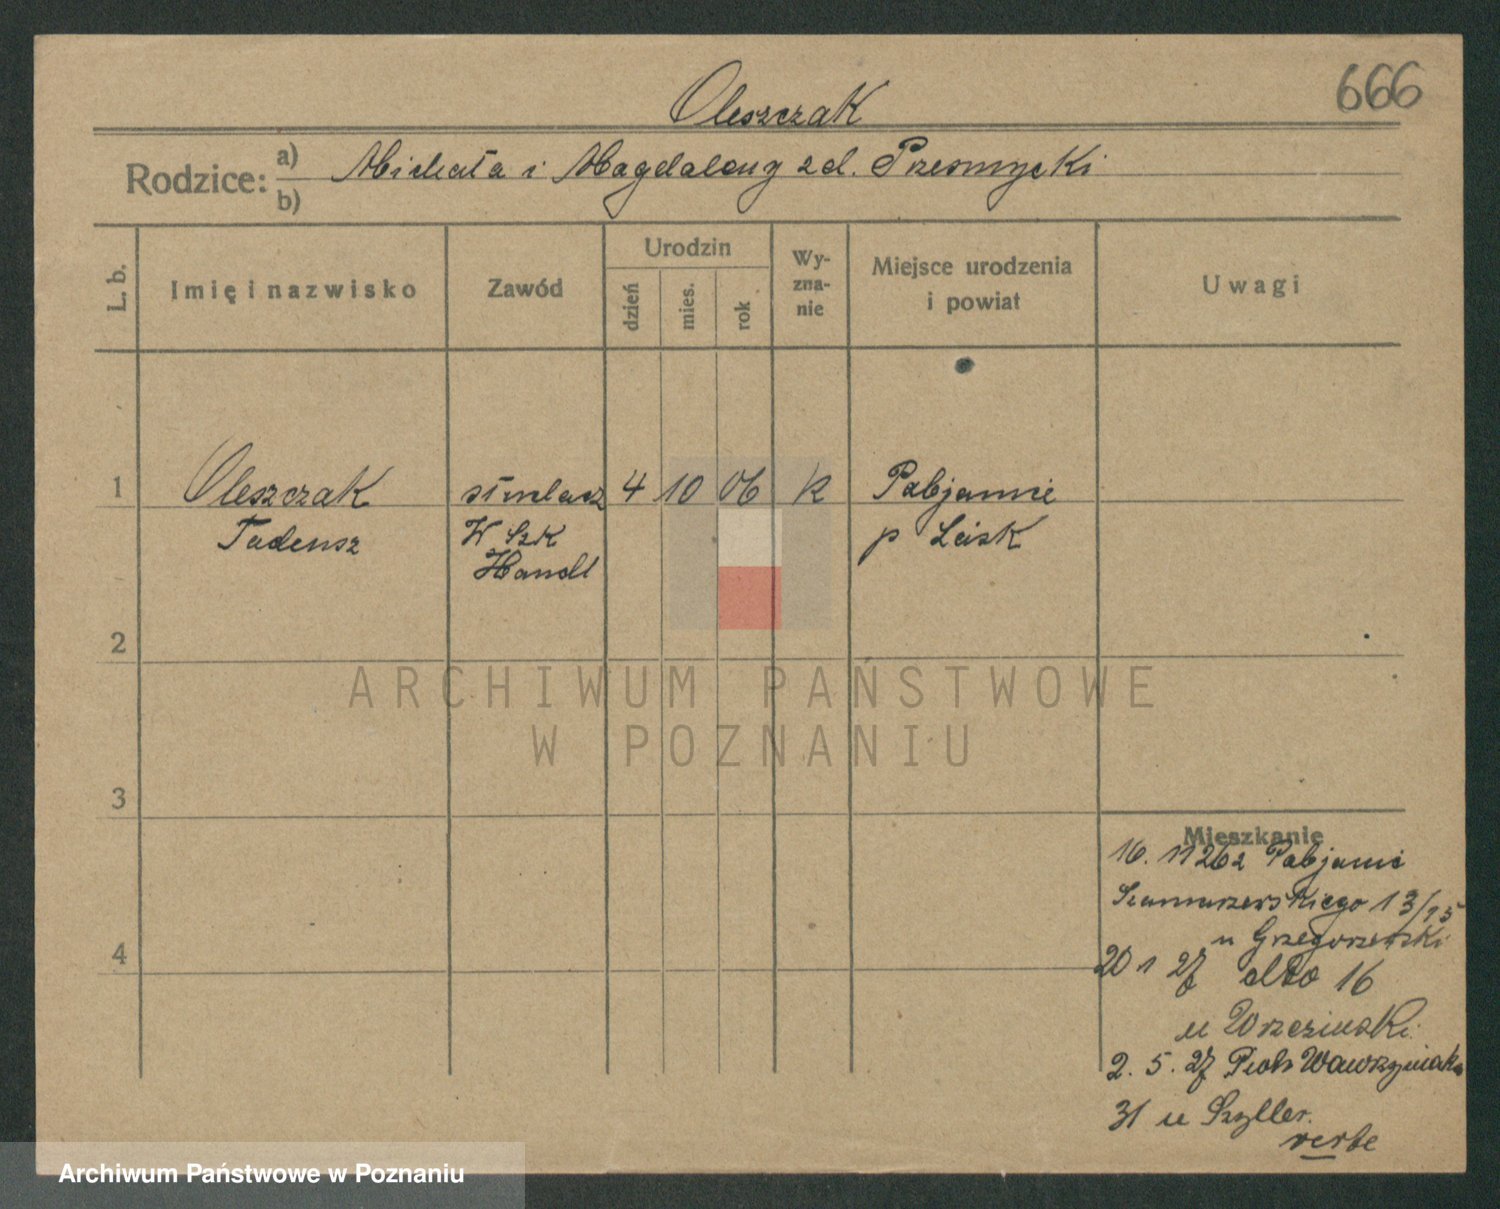 Oleszczak
666
Rodzice: a) Michała i Magdaleny zd. Przesmycki
b)
L. b.
Imię i nazwisko
Zawód
Urodzin
dzień
mies.
rok
Wy-
zna-
nie
Miejsce urodzenia
i powiat
Uwagi
1 Oleszczak 4 10 06 K Pabjanice
Tadeusz W Szk p Łask
Handl
2
ARCHIWUM PAŃSTWOWE
W POZNANIU
3
Mieszkanie
16. 11 26 z Pabjanic
Szamarzewskiego 13/15
u Grzegorzewski
4
20 1 27 dto 16
u
2. 5. 27 Piotr Wawrzyniaka
31 u Szyller.
verte
Archiwum Państwowe w Poznaniu